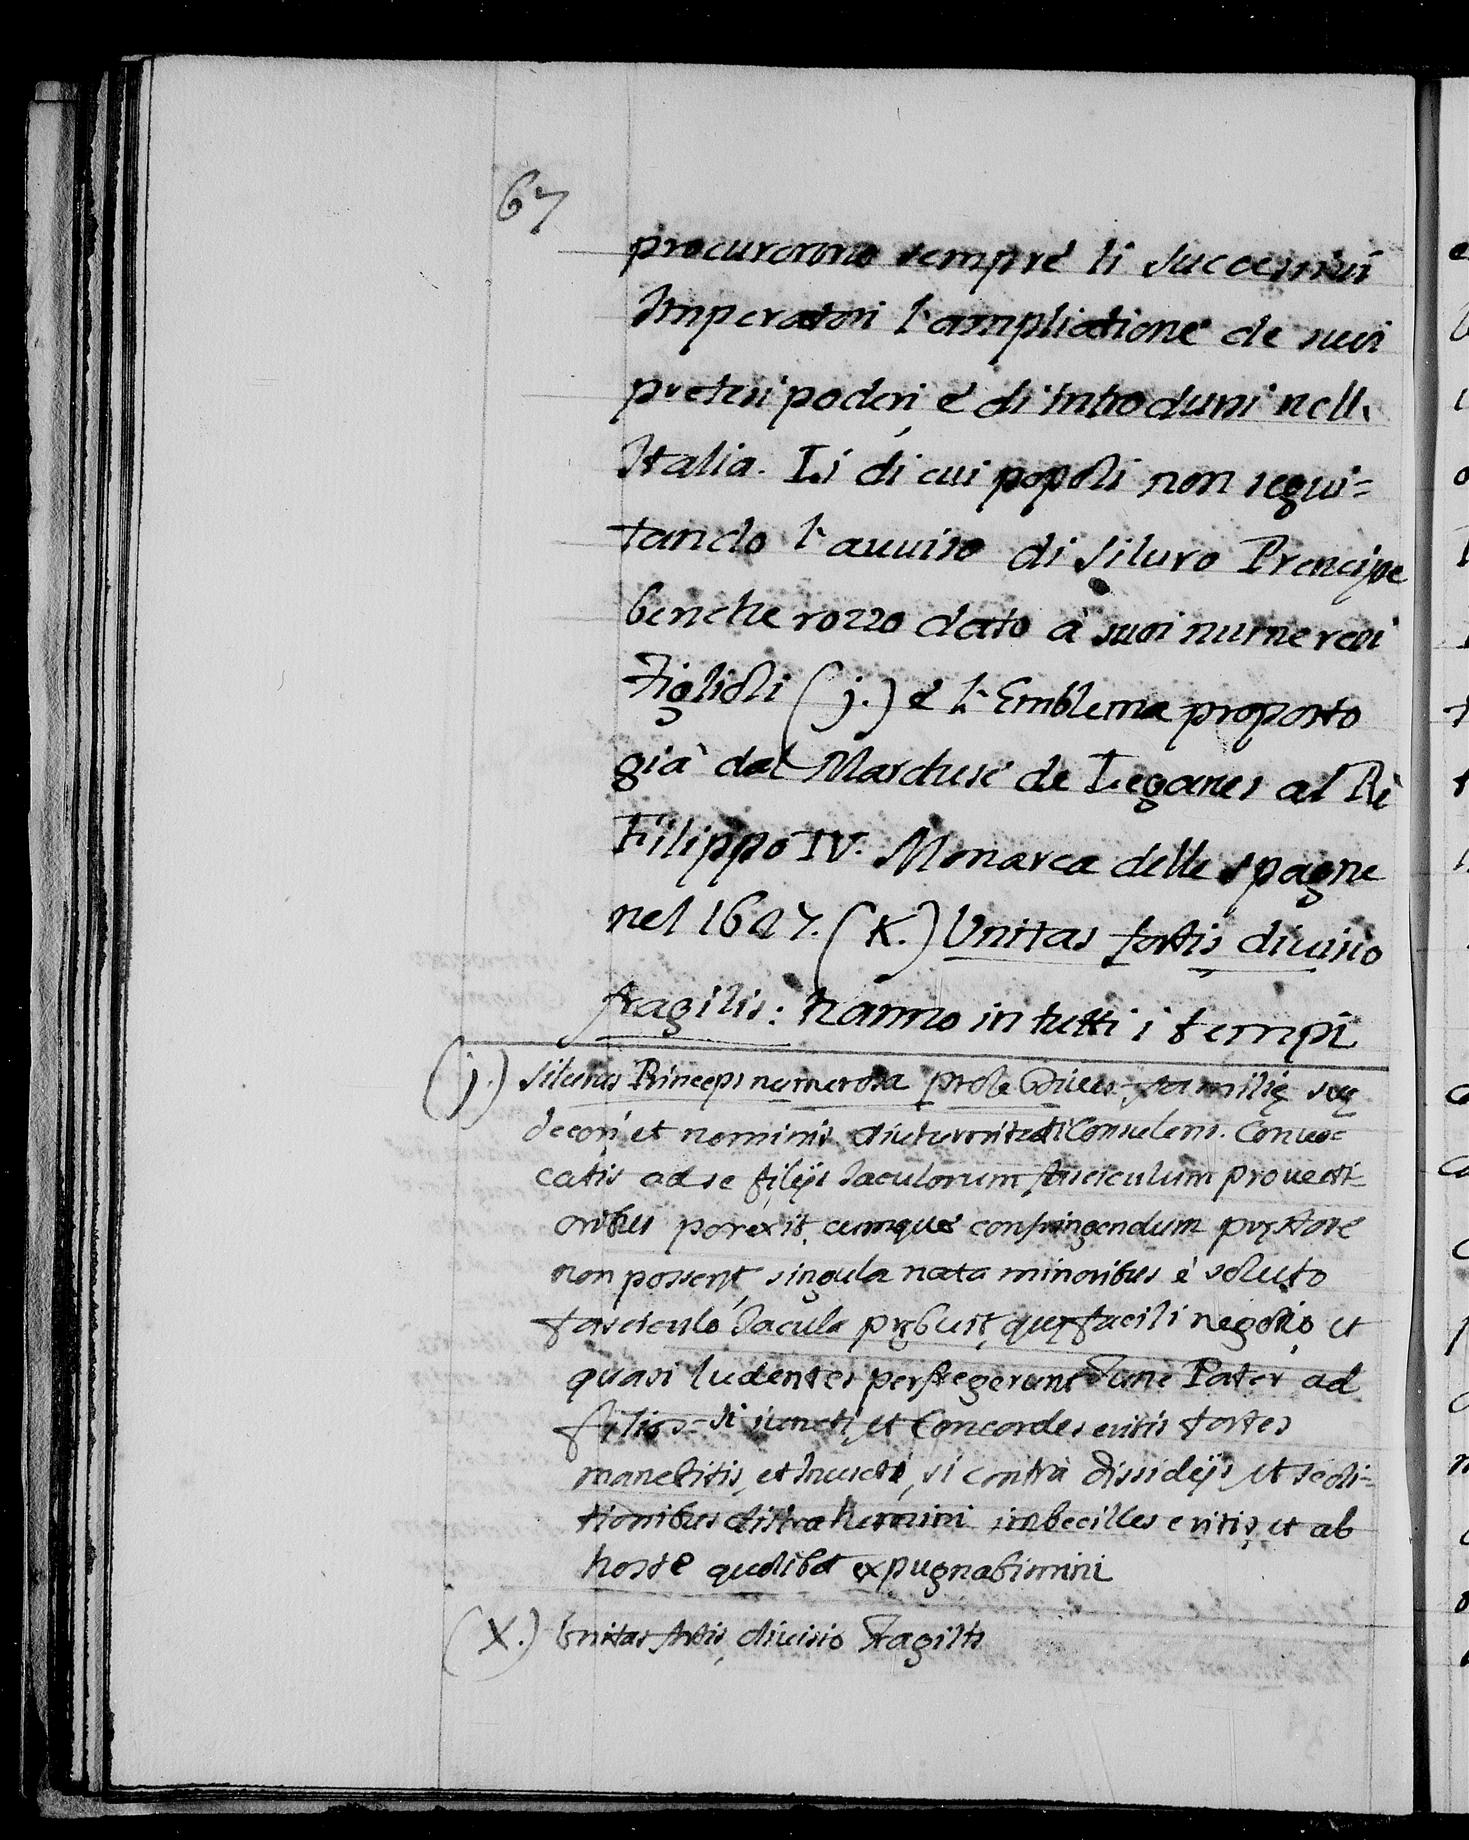 67
procurorono sempre li successiui
Imperatori l'ampliatione de suoi
pretesi poderi, e di introdursi nell'
Italia. Li di cui popoli non segui=
tando l'auuiso di Siluro Prencipe
benche rozzo dato à suoi numerosi
Figlioli (j.) e l'Emblema proposto
già dal Marchese de Leganes al Rè
Filippo IV. Monarca delle Spagne
nel 1627. (K.) Unitas fortis, diuisio
fragilis: hanno in tutti i tempi
(j.) Silurus Princeps numerosa prole Diues, familię suę
decori, et nominis diuturnitati Consulens. Conuo=
catis ad se filijs Iaculorum fasciculum prouecti
oribus porexit, cumque confringendum pręstare
non possent, singula nata minoribus è soluto
fasciculo Iacula prębuit, quę facili negotio, et
quasi ludentes perfregerunt Tunc Pater ad
filios= Si iuncti, et Concordes eritis fortes
manebitis, et Inuicti, si contra dissidijs et sedi=
tionibus distrahemini imbecilles eritis, et ab
hoste quolibet expugnabimini
(K.) Unitas fortis, diuisio Fragilis